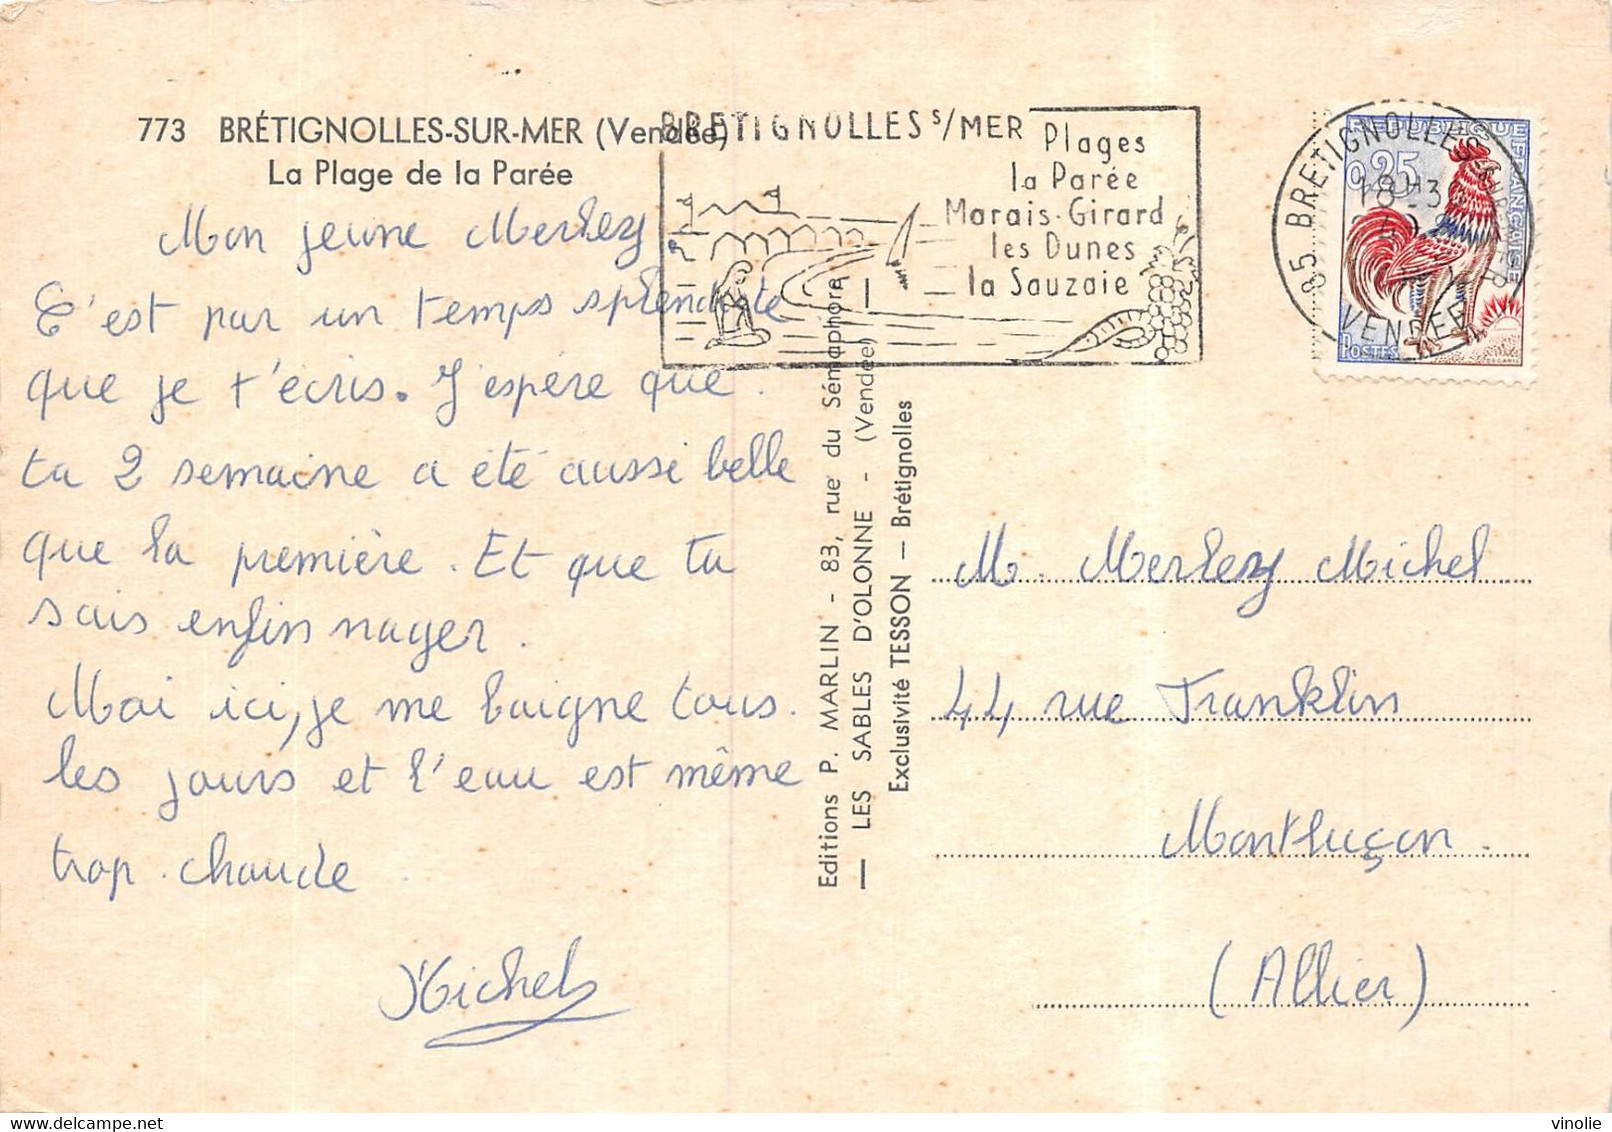 773 BRÉTIGNOLLES-SUR-MER (Vendée)
La Plage de la Parée
Mon jeune Merlezy
C'est par un temps splendide
que je t'écris. J'espère que
ta 2 semaine a été aussi belle
que la première. Et que tu
sais enfin nager.
Moi ici, je me baigne tous
les jours et l'eau est même
trop chaude
Michel
Editions P. MARLIN - 83, rue du Sémaphore
— LES SABLES D'OLONNE - (Vendée)
Exclusivité TESSON — Brétignolles
BRETIGNOLLES S/MER
Plages
la Parée
Marais-Girard
les Dunes
la Sauzaie
85 BRETIGNOLLES-SUR-MER
18H30
VENDEE
REPUBLIQUE FRANÇAISE
0,25
POSTES
M. Merlezy Michel
44 rue Franklin
Montluçon.
(Allier)
vinolie